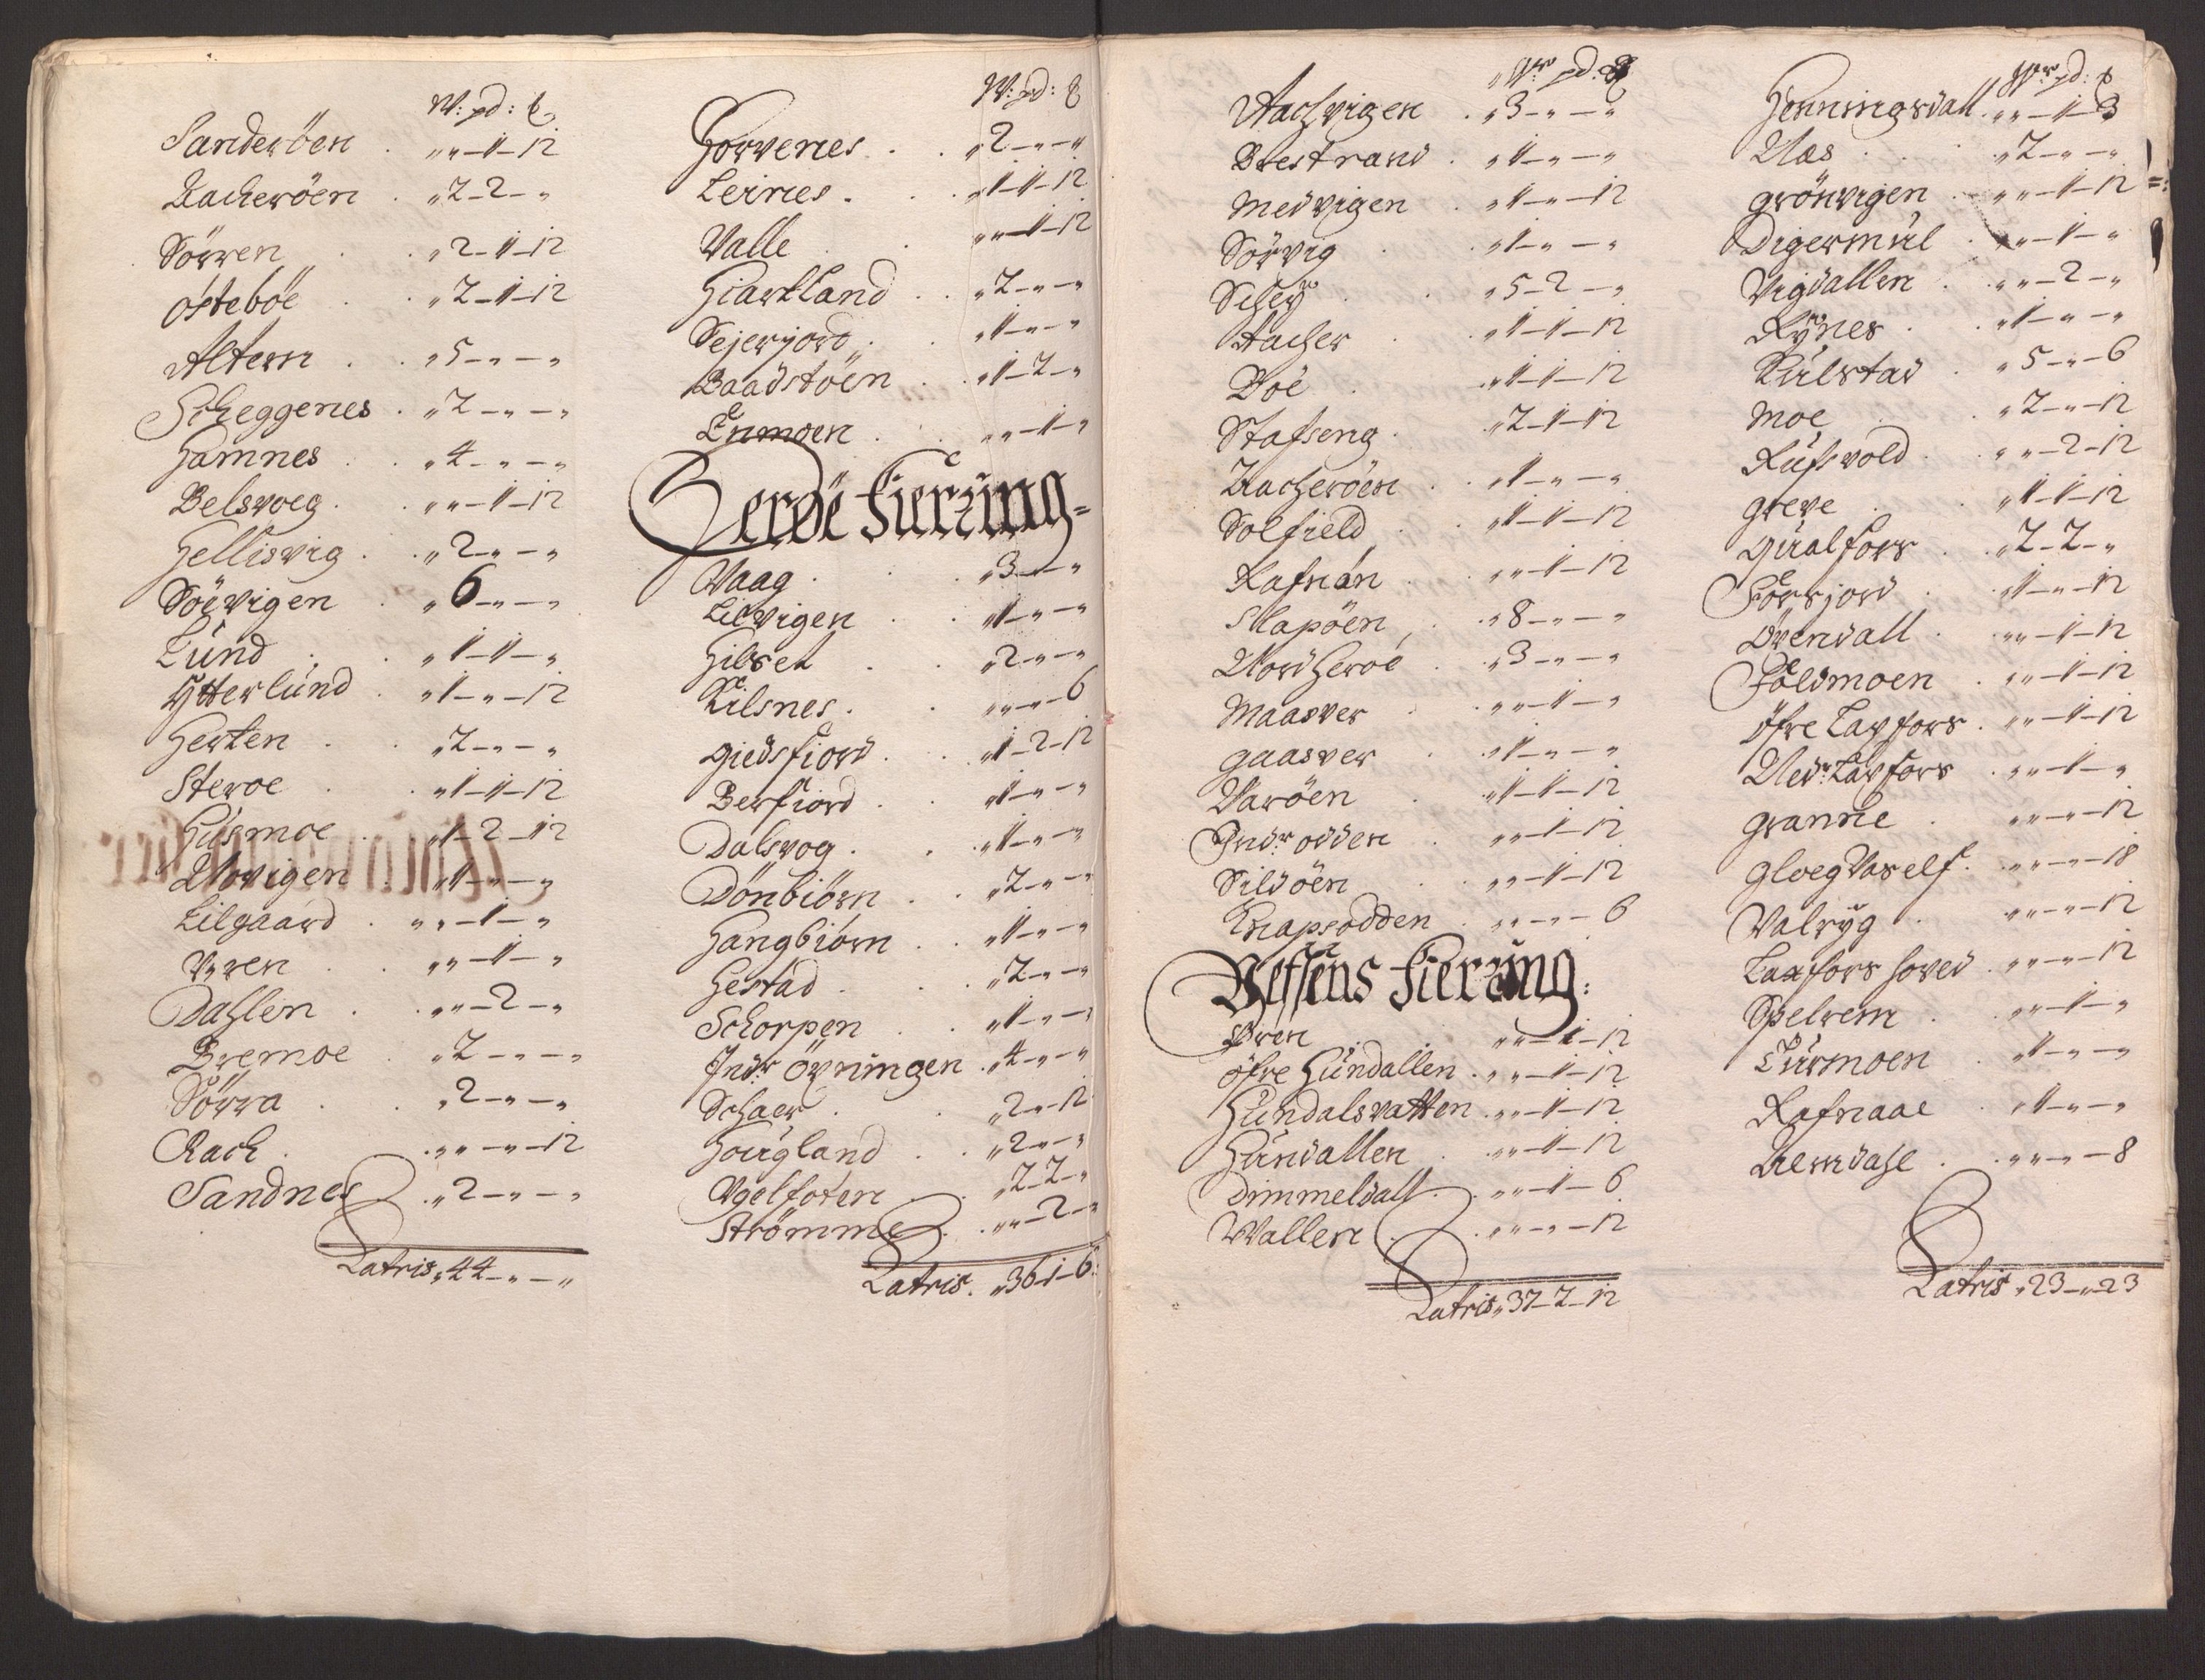 W: pd: ℔
Sanderöen . „ „ – 1 – 12
Kacheröen . „ 2 – 2 – „
Sörren . „ 2 – 1 – 12
Östeböe . „ 2 – 1 – 12
Altern . „ 5 – „ – „
Scheggenes . „ 2 – „ – „
Hamnes . „ 4 – „ – „
Belsvoeg . „ „ – 1 – 12
Hellisvig . „ 2 – „ – „
Söevigen . „ 6 – „ – „
Lund . „ 1 – 1 – „
Ytterlund . „ 1 – „ – 12
Herten . „ 2 – „ – „
Steroe . „ 1 – 1 – 12
Husmoe . „ 1 – 2 – 12
Novigen „ 1 – „ – „
Lilgaard . „ „ – 1 – „
Vren . „ „ – 1 – „
Dahlen . „ „ – 2 – „
Bremoe . „ 2 – „ – „
Sörra . „ 2 – „ – „
Rach . „ „ – „ – 12
Sandnes . „ 2 – „ – „
Latris „ 44 – „ – „
W: pd: ℔
Horvenes . . „ 2 – „ – „
Leirnes . . „ 1 – 1 – 12
Valle . „ „ – 1 – 12
Hiartland . . „ 2 – „ – „
Sejerjord . „ 1 – „ – „
Baadstöen . . „ 1 – 2 – „
Enmoen . „ „ – 1 – „
Herøe Fierung =
Vaag . . „ 3 – „ – „
Lilvigen . . „ 1 – „ – „
Hilset . „ 2 – „ – „
Kilsnes . . „ „ – „ – 6
Giedsfiord . . „ 1 – 2 – 12
Berfiord . . „ 1 – „ – „
Dalsvog . . „ 1 – „ – „
Dönbiörn . . „ 2 – „ – „
Hangbiörn . . „ 1 – „ – „
Hestad . . „ 2 – „ – „
Schorpen . . „ 1 – „ – „
Indr Övringen . „ 4 – „ – „
Schaer . . „ 2 – „ – 12
Hougland . . „ 2 – „ – „
Vgelfoten . „ 2 – 2 – „
Strömme . „ „ – 2 – „
Latris . „ 36 – 1 – 6 :
Wr pd: ℔
Aachvigen . „ 3 – „ – „
Brestrand . „ 1 – „ – „
Medvigen . „ 1 – „ – 12
Sörvig . „ 1 – „ – „
Schey . . „ 5 – 2 – „
Aacher . „ 1 – 1 – 12
Boe . . „ 1 – 1 – 12
Stafseng . „ 2 – 1 – 12
Kacheröen . „ 1 – „ – „
Solfield . „ 1 – 1 – 12
Rafnân . . „ „ – 1 – 12
Slapöen . „ 8 – „ – „
Nordheroe . „ 3 – „ – „
Maasver . „ „ – 1 – „
Gaasver . „ 1 – „ – „
Varöen . „ 1 – 1 – 12
Indr odden . „ „ – 1 – 12
Sildöen . „ „ – 1 – 12
Knapsodden . „ „ – „ – 6
Vefsens Fierung :
Vren „ „ – 1 – 12
Öfre Hundallen . „ „ – 1 – 12
Hundalsvatten . „ „ – 1 – 12
Hundallen . „ „ – 1 – 12
Dimmeldall . „ „ – 1 – 6
Wallen . „ „ – „ – 12
Latris „ 37 – 2 – 12
Wr pd: ℔
Henningsdall . „ „ – 1 – 3
Næs . . „ 2 – „ – „
Grönvigen . „ „ – 1 – 12
Digermul . „ „ – 1 – „
Vigdallen . „ „ – 2 – „
Rynes . . „ 1 – „ – „
Kulstad . „ 5 – „ – 6
Moe . . „ 2 – „ – 12
Rufsvold . „ „ – 2 – 12
Greve . „ 1 – 1 – 12
Gualfors . „ 2 – 2 – „
Forsjord . „ 1 – „ – 12
Drendall . „ „ – 1 – 12
Foldmoen . „ „ – 1 – 12
Öfre Laxfors . „ „ – 1 – 12
Nedr: Laxfors . „ „ – 1 – „
Granne . „ „ – „ – 12
Gloeg Vaself . „ „ – „ – 18
Valryg . „ „ – „ – 12
Laxfors hoved . „ „ – „ – 12
Spelrem . „ „ – 1 – „
Turmoen . „ 1 – „ – „
Rafnaae . „ 1 – „ – „
Remdahl . „ „ – „ – 8
Latris „ 23 – „ – 23